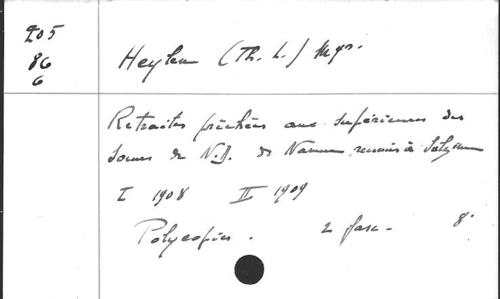 205
86
6
Heylen (Th. L.) Mgr.
Retraites prêchées aux supérieures des
Soeurs de N.D. de Namur, réunies à
I 1908 II 1909
Polycopiés. 2 fasc. 8°